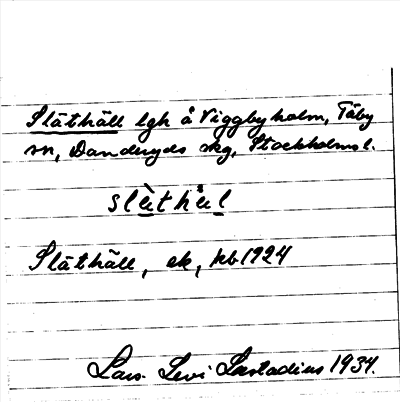 Släthäll lgh å Viggbyholm, Täby
sn, Danderyds skg, Stockholms l.
Släthäll, ek, hb 1924
Lars Levi Læstadius 1934.